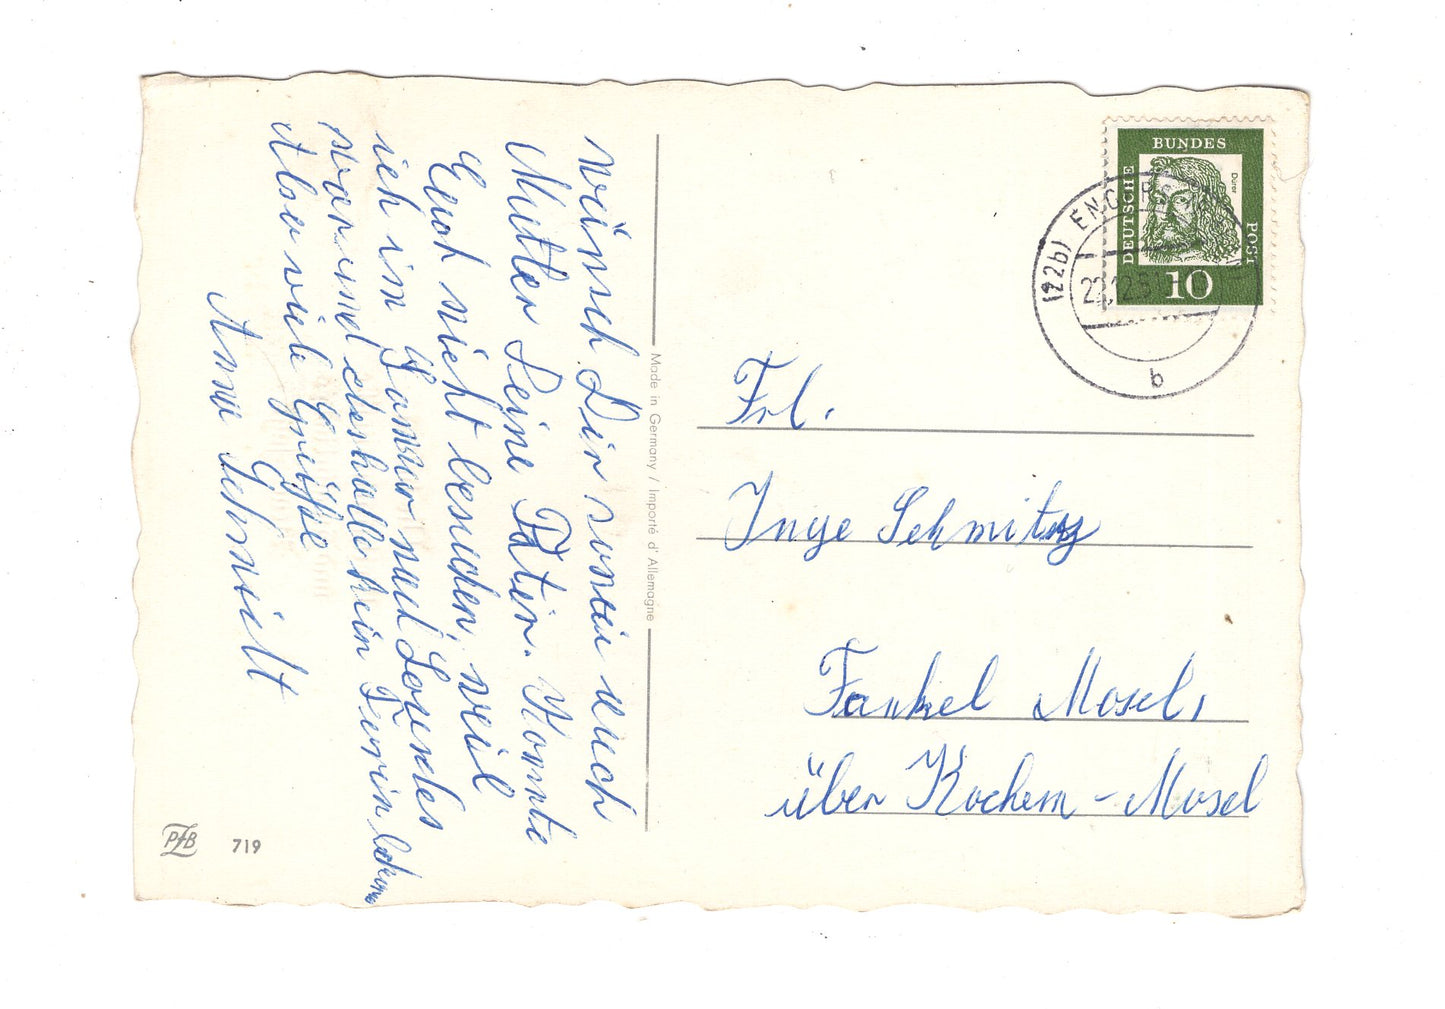 wünsch Dir sowie auch
Mutter Deine Vater. Konnte
Euch nicht besuchen, weil
ich im Sommer nach Lourdes
war und deshalb kein Ferien bekam
Also viele Grüße
Anna Schmidt
Made in Germany / Importé d'Allemagne
PFB 719
DEUTSCHE BUNDES POST
Dürer
10
(22b) ENG
22.12.
b
Frl.
Inge Schmitz
Fankel Mosel,
über Kochem - Mosel